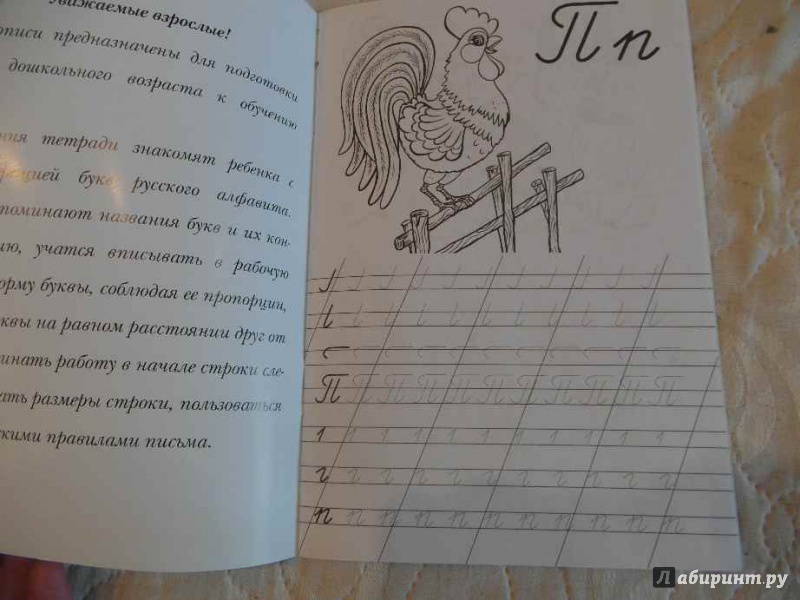 Уважаемые взрослые!
описи предназначены для подготовки
дошкольного возраста к обучению
ния тетради знакомят ребенка с
цией букв русского алфавита.
поминают названия букв и их кон-
ию, учатся вписывать в рабочую
орму буквы, соблюдая ее пропорции,
квы на равном расстоянии друг от
инать работу в начале строки сле-
ать размеры строки, пользоваться
кими правилами письма.
П п
П П П П П П П П П П П
п п п п п п п п п п п
Лабиринт.ру